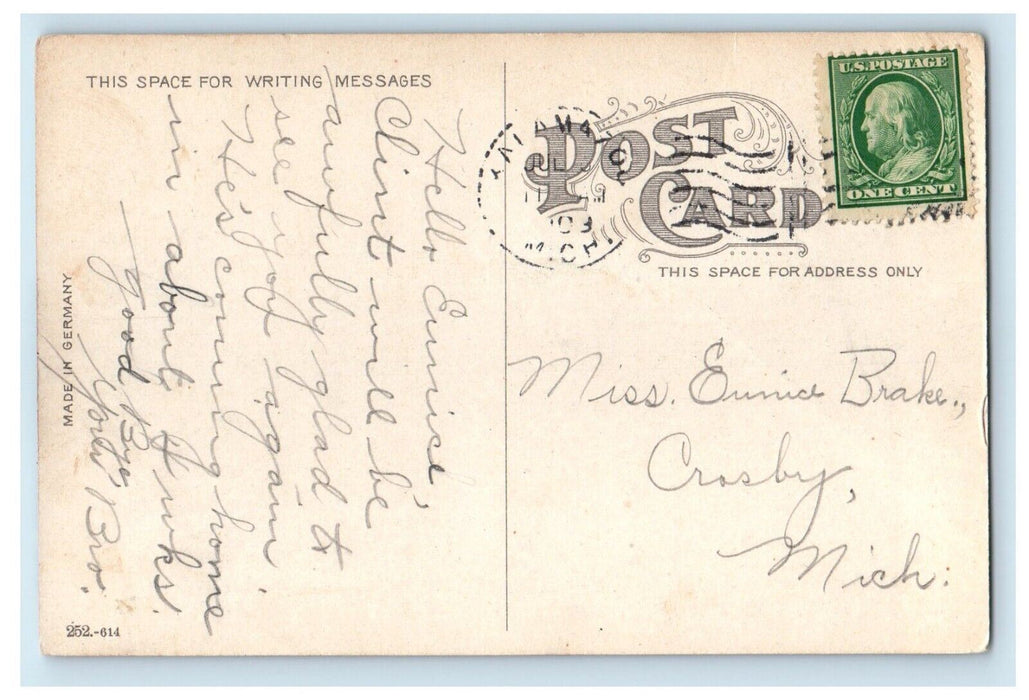 THIS SPACE FOR WRITING MESSAGES
Hello Eunice,
Clint will be
awfully glad to
see you again.
He's coming home
in about 4 wks.
Good Bye
Your Bro.
MADE IN GERMANY
252.-614
POST
CARD
THIS SPACE FOR ADDRESS ONLY
U.S. POSTAGE
ONE CENT
MICH
Miss. Eunice Brake.,
Crosby,
Mich.